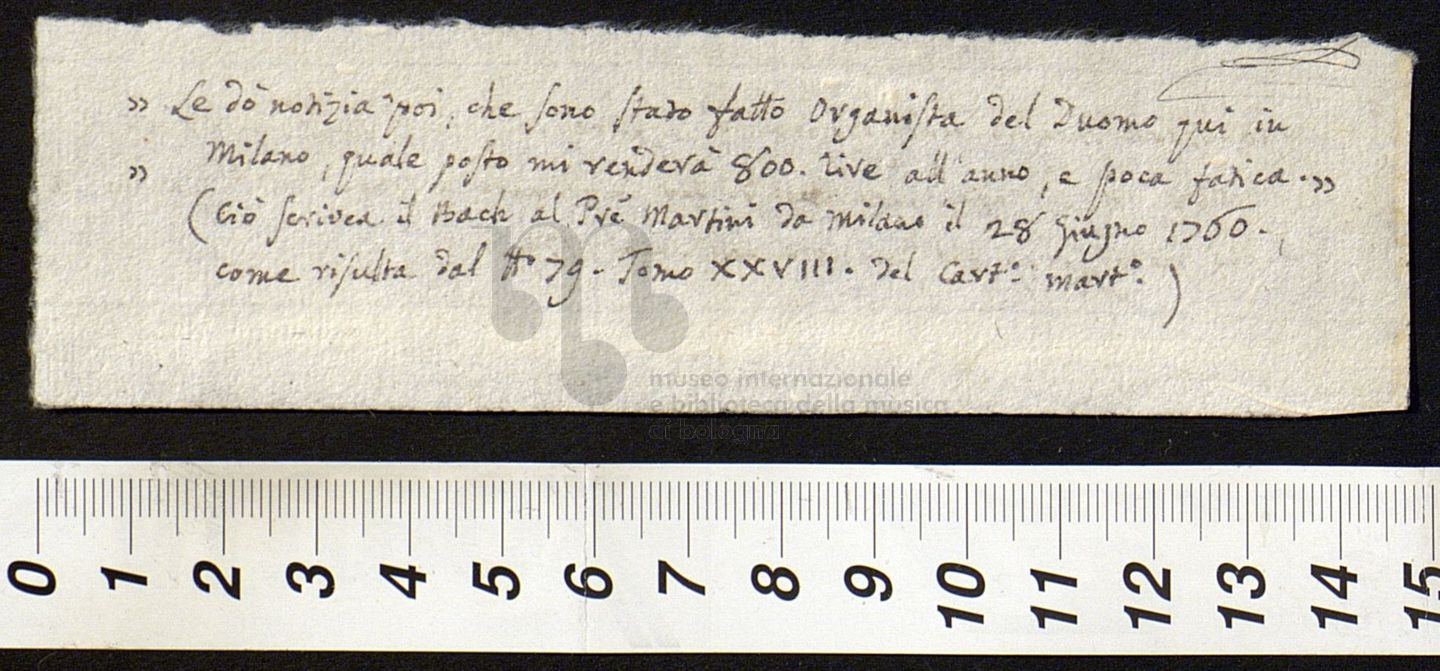 » Le dò notizia poi, che sono stato fatto Organista del Duomo qui in
» Milano, quale posto mi renderà 800. live all'anno, e poca fatica.»
(Ciò scrivea il Bach al Pre Martini da Milano il 28 Giugno 1760.
come risulta dal No 79. Tomo XXVIII. del Carto: Marto:)
museo internazionale
e biblioteca della musica
di bologna
0 1 2 3 4 5 6 7 8 9 10 11 12 13 14 15